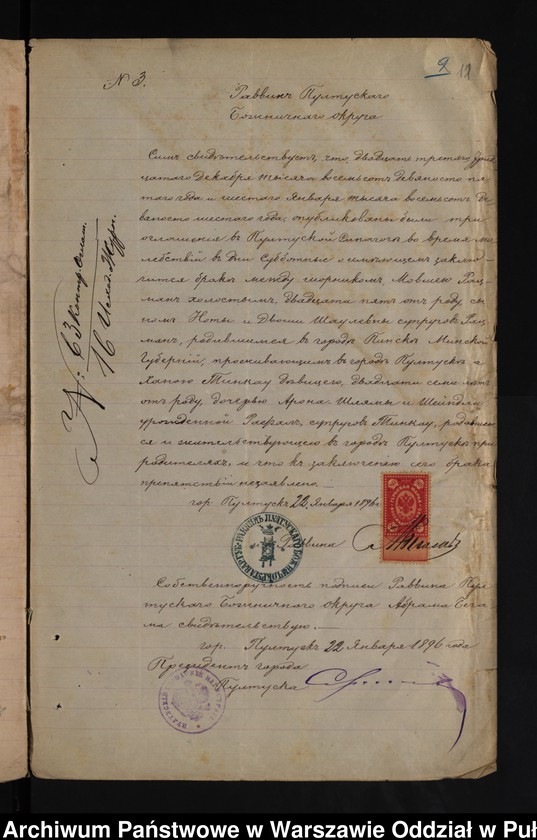 9 12
N 3.
Раввинъ Пултускаго
Божничнаго округа
Симъ свидѣтельствуетъ, что двадцать третьяго, трид
цатаго Декабря тысяча восемьсотъ девяносто пя
таго года и шестаго Января тысяча восемьсотъ де
вяносто шестаго года, опубликованы были три
оглашенія въ Пултуской Синагогѣ во время мо
лебствій въ дни Субботные о имѣющемъ заклю
чится бракѣ между шорникомъ, Мовшею Рац
манъ холостымъ, двадцати пять отъ роду сы
номъ Ноты и Двоши Шаулевны супруговъ Рац
манъ, родившимся въ городѣ Пинскѣ Минской
Губерніи, проживающимъ въ городѣ Пултускѣ а
Ханою Тинкау дѣвицею, двадцати семи лѣтъ
отъ роду, дочерью Арона-Шлямы и Шейндли
урожденной Расфалъ, супруговъ Тинкау, родившей
ся и жительствующею въ городѣ Пултускѣ при
родителяхъ, и что къ заключенію сего брака
препятствій незаявлено.
гор. Пултускъ 22 Января 1896 г.
Раввинъ
Собственноручность подписи Раввина Пул
тускаго Божничнаго округа Абрама Сега
ла свидѣтельствую.
гор. Пултускъ 22 Января 1896 года
Президентъ города
Пултуска
16 Исход. Журн.
Archiwum Państwowe w Warszawie Oddział w Puł